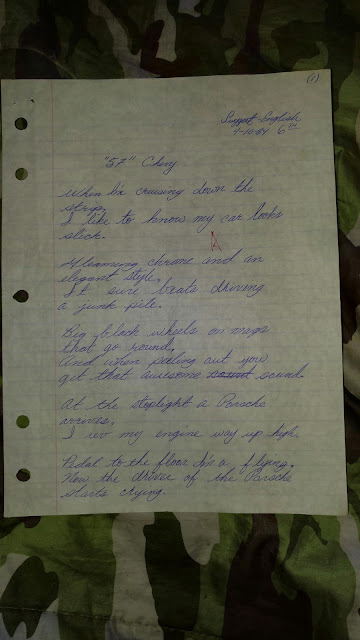 (1)
English
4-10-84 6th
"57" Chevy
When I'm cruising down the
strip,
I like to know my car looks
sleek.
A
Gleaming chrome and an
elegant style,
It sure beats driving
a junk pile.
Big black wheels on mags
that go round,
And when peeling out you
get that awesome sound.
At the stoplight a Porsche
arrives,
I rev my engine way up high.
Pedal to the floor I'm a flying.
Now the driver of the Porsche
starts crying.